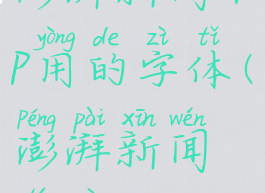 yòng de zì tǐ
P用的字体(
Péng pài xīn wén
澎湃新闻